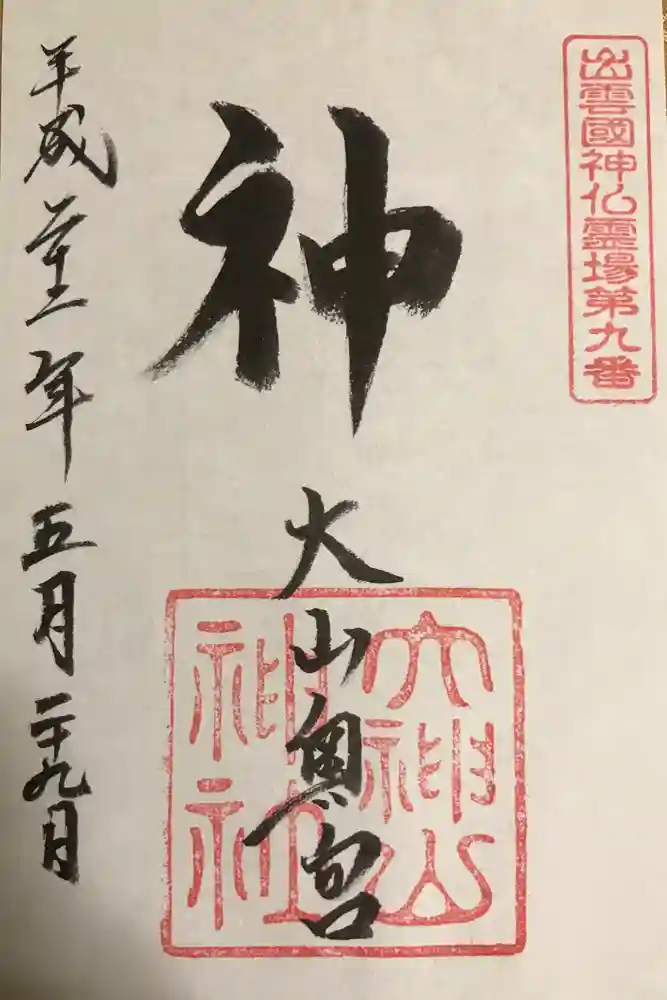 出雲國神仏霊場第九番
神
大山奥宮
大神山
神社
平成二十二年五月二十九日